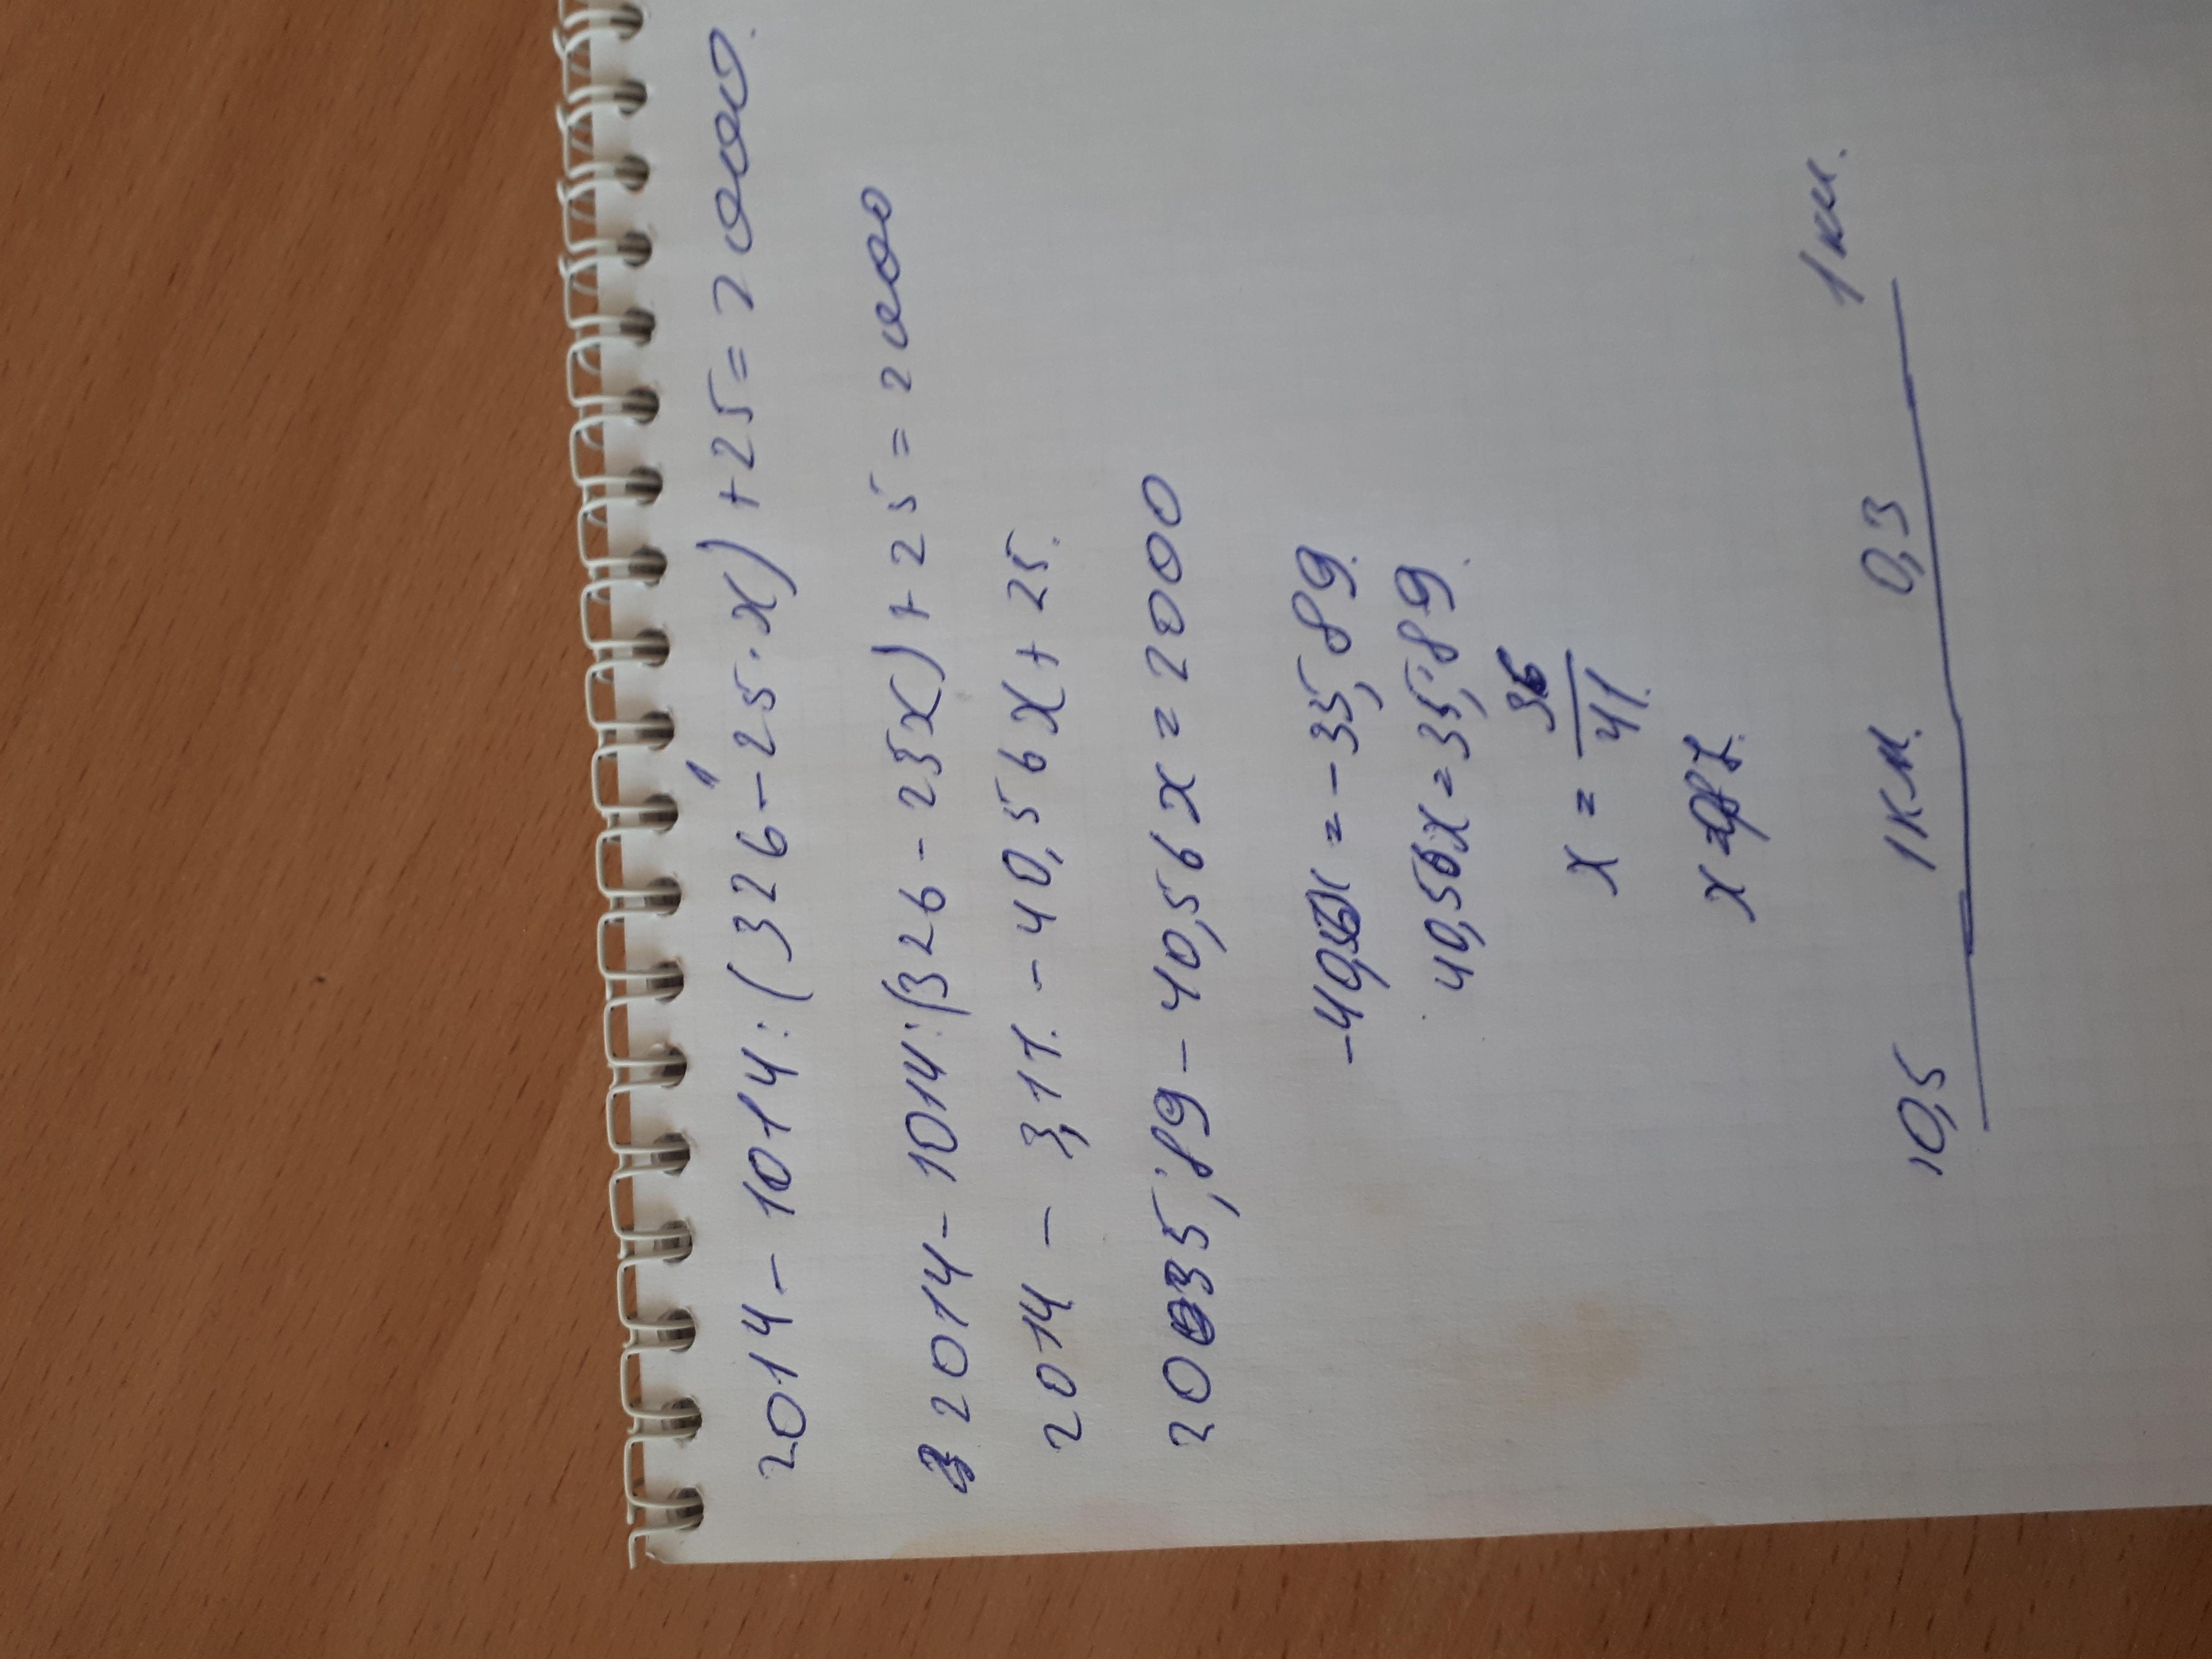 2014 - 1014 : (326 - 25 · x) + 25 = 2000.
2014 - 1014 : (326 - 25x) + 25 = 2000
2014 - 3,11. - 40,56x + 25.
2035,89 - 40,56x = 2000
-40,56x = -35,89.
40,56x = 35,89.
x = 36/41.
x =
10,5 1км. 0,3 1км.